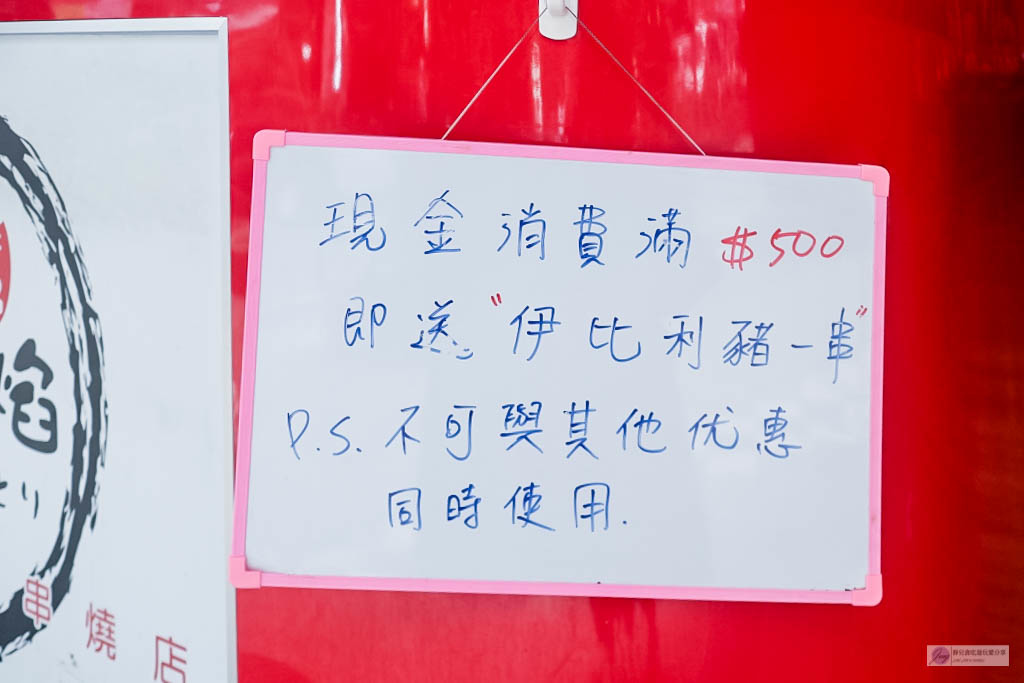 現金消費滿$500
即送"伊比利豬一串"
P.S.不可與其他优惠
同時使用.
焰
とり
串燒店